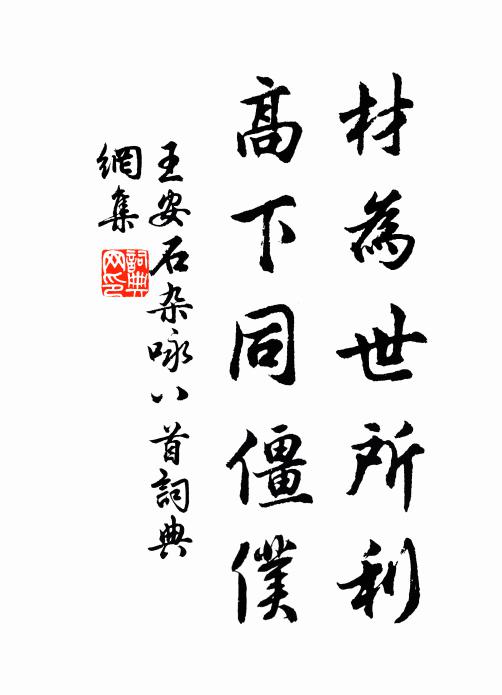 材為世所利
高下同僵僕
王安石杂咏八首詞典
網集
詞典
网印